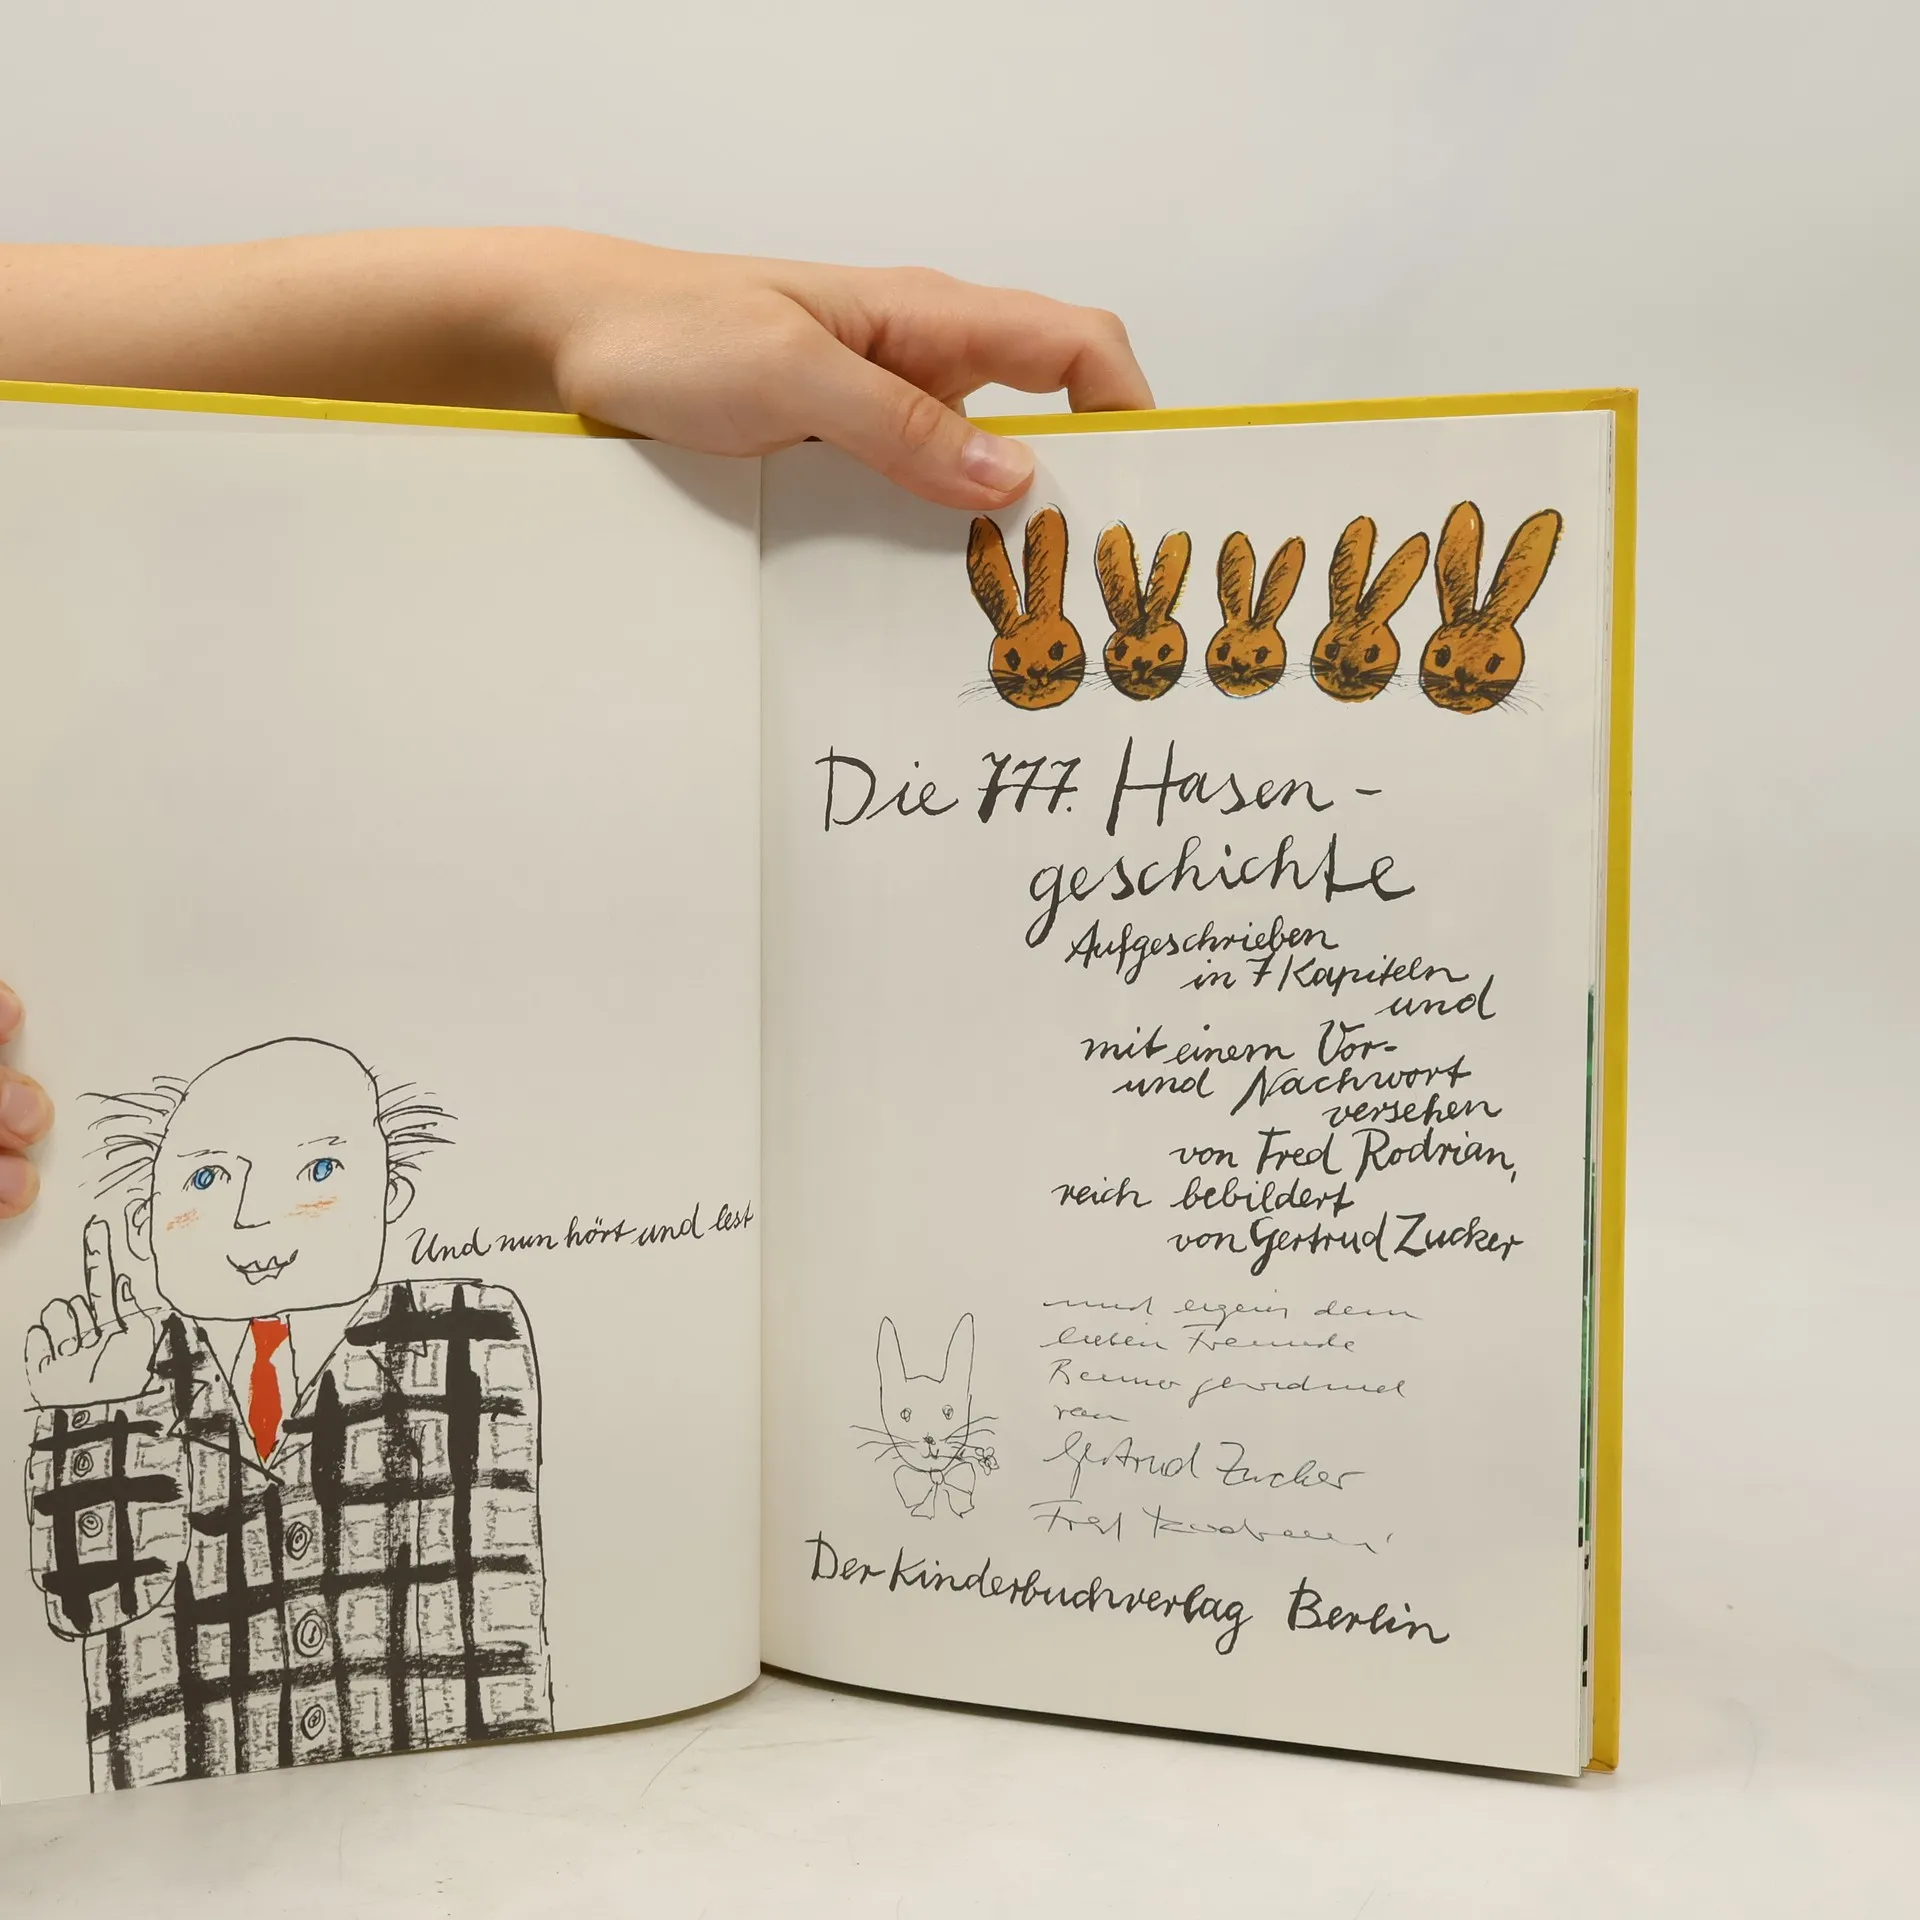 Und nun hört und lest
Die 777. Hasen-
geschichte
Aufgeschrieben
in 7 Kapiteln
und
mit einem Vor-
und Nachwort
versehen
von Fred Rodrian,
reich bebildert
von Gertrud Zucker
und eigens dem
lieben Freunde
Benno gewidmet
von
Gertrud Zucker
Fred Rodrian
Der Kinderbuchverlag Berlin